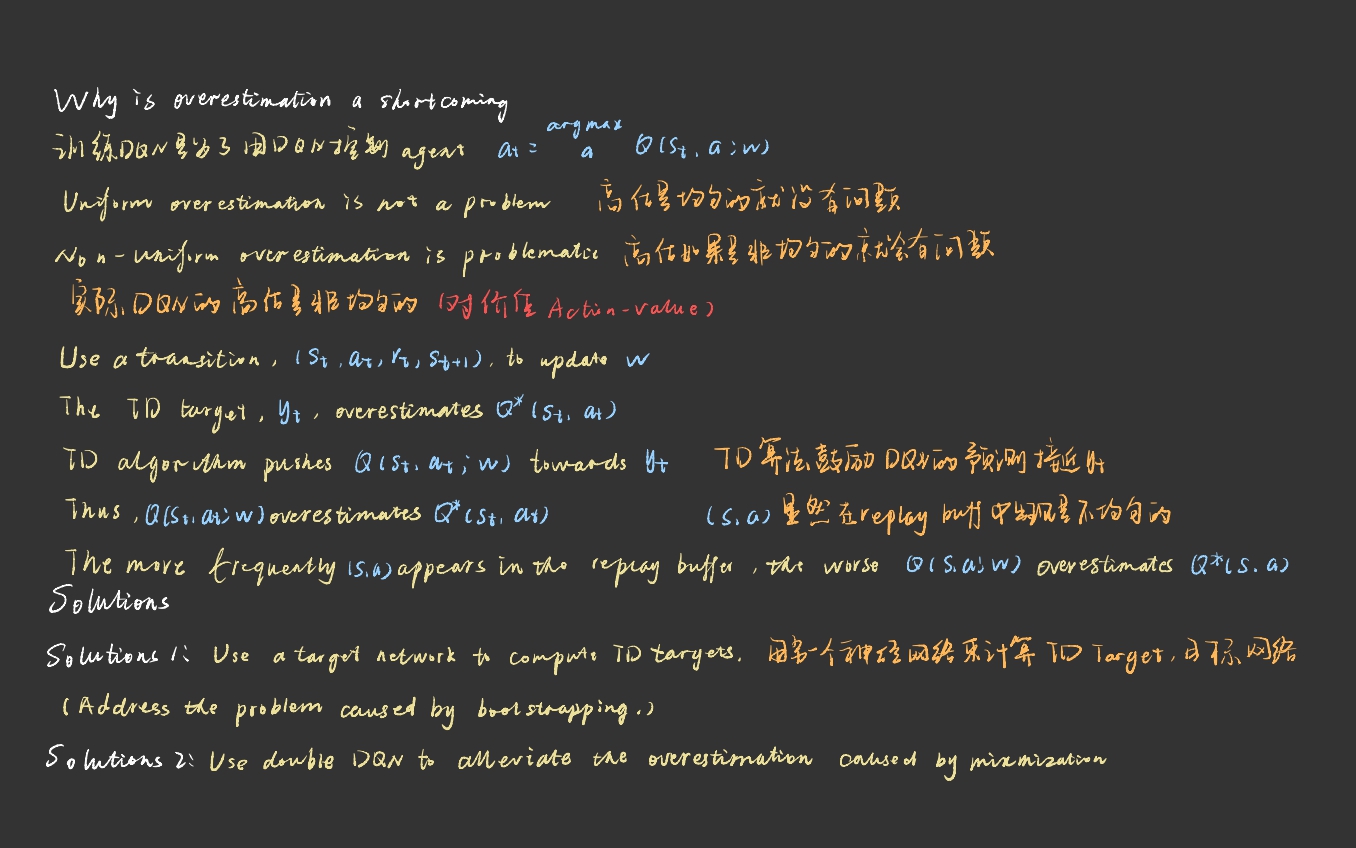 Why is overestimation a shortcoming
训练DQN是为了用DQN控制 agent a_t = argmax_a Q(s_t, a; w)
Uniform overestimation is not a problem 高估是均匀的就没有问题
Non-uniform overestimation is problematic 高估如果是非均匀的就会有问题
实际DQN的高估是非均匀的 (对价值 Action-value)
Use a transition, (s_t, a_t, r_t, s_{t+1}), to update w
The TD target, y_t, overestimates Q*(s_t, a_t)
TD algorithm pushes Q(s_t, a_t; w) towards y_t TD算法鼓励DQN的预测接近y_t
Thus, Q(s_t, a_t; w) overestimates Q*(s_t, a_t) (s, a) 显然在replay buff中出现是不均匀的
The more frequently (s, a) appears in the replay buffer, the worse Q(s, a; w) overestimates Q*(s, a)
Solutions
Solutions 1: Use a target network to compute TD targets. 用另一个神经网络来计算TD Target, 目标网络
(Address the problem caused by bootstrapping.)
Solutions 2: Use double DQN to alleviate the overestimation caused by mixmization